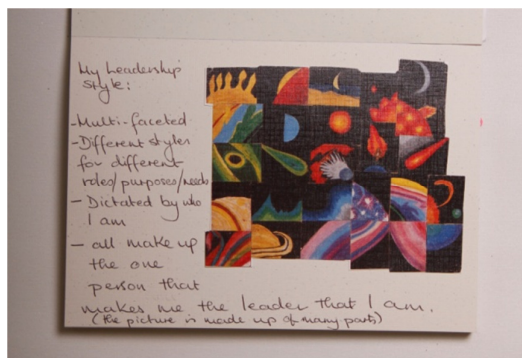 My Leadership
Style:
-Multi-faceted
-Different styles
for different
roles/purposes/needs
- Dictated by who
I am
- all make up
the one
person that
makes me the leader that I am.
(the picture is made up of many parts)